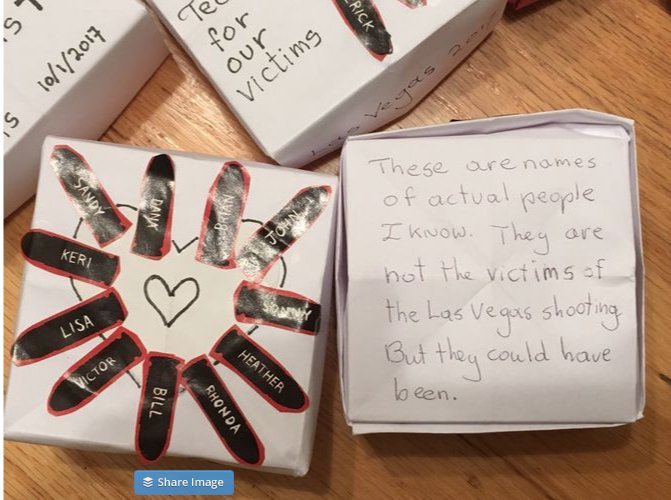 10/1/2017
for
our
victims
RICK
Las Vegas
SANDY
DANA
BRIAN
JOHN
KERI
LISA
VICTOR
BILL
RHONDA
HEATHER
These are names
of actual people
I know. They are
not the victims of
the Las Vegas shooting
But they could have
been.
Share Image